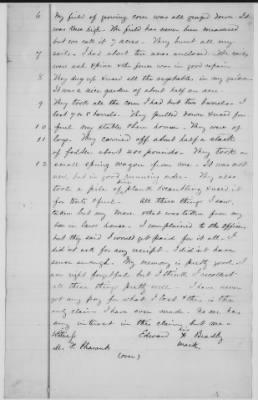 6 My field of growing corn was all grazed down. It
was knee high. The field has never been measured
but we call it 3 acres. They burnt all my
7 rails. I had about ten acres enclosed. The rails
were ash & pine & the fence was in good repair.
8 They dug up & used all the vegetables in my garden.
It was a nice garden of about half an acre.
9 They took all the corn I had but two bushels. I
lost 700 bushels. They pulled down & used for
10 fuel my stable & barn house. They were of
11 logs. They carried off about half a stack
of fodder about 200 pounds. They took a
12 small spring wagon from me. It was old
but in good running order. They also
took a pile of plank & scantling & used it
for tents & fuel. All these things I saw
taken but my mare. She was taken from my
son in laws house. I complained to the officer
but they said I would get paid for it all. I
did not ask for any receipt. I did not have
sense enough. My memory is pretty good. I
am right forgetful but I think I recollect
all these things pretty well. I have never
got any pay for what I lost & this is the
only claim I have ever made. No one has
any interest in this claim but me.
Witness Edward his X Bradly
mark
(over)